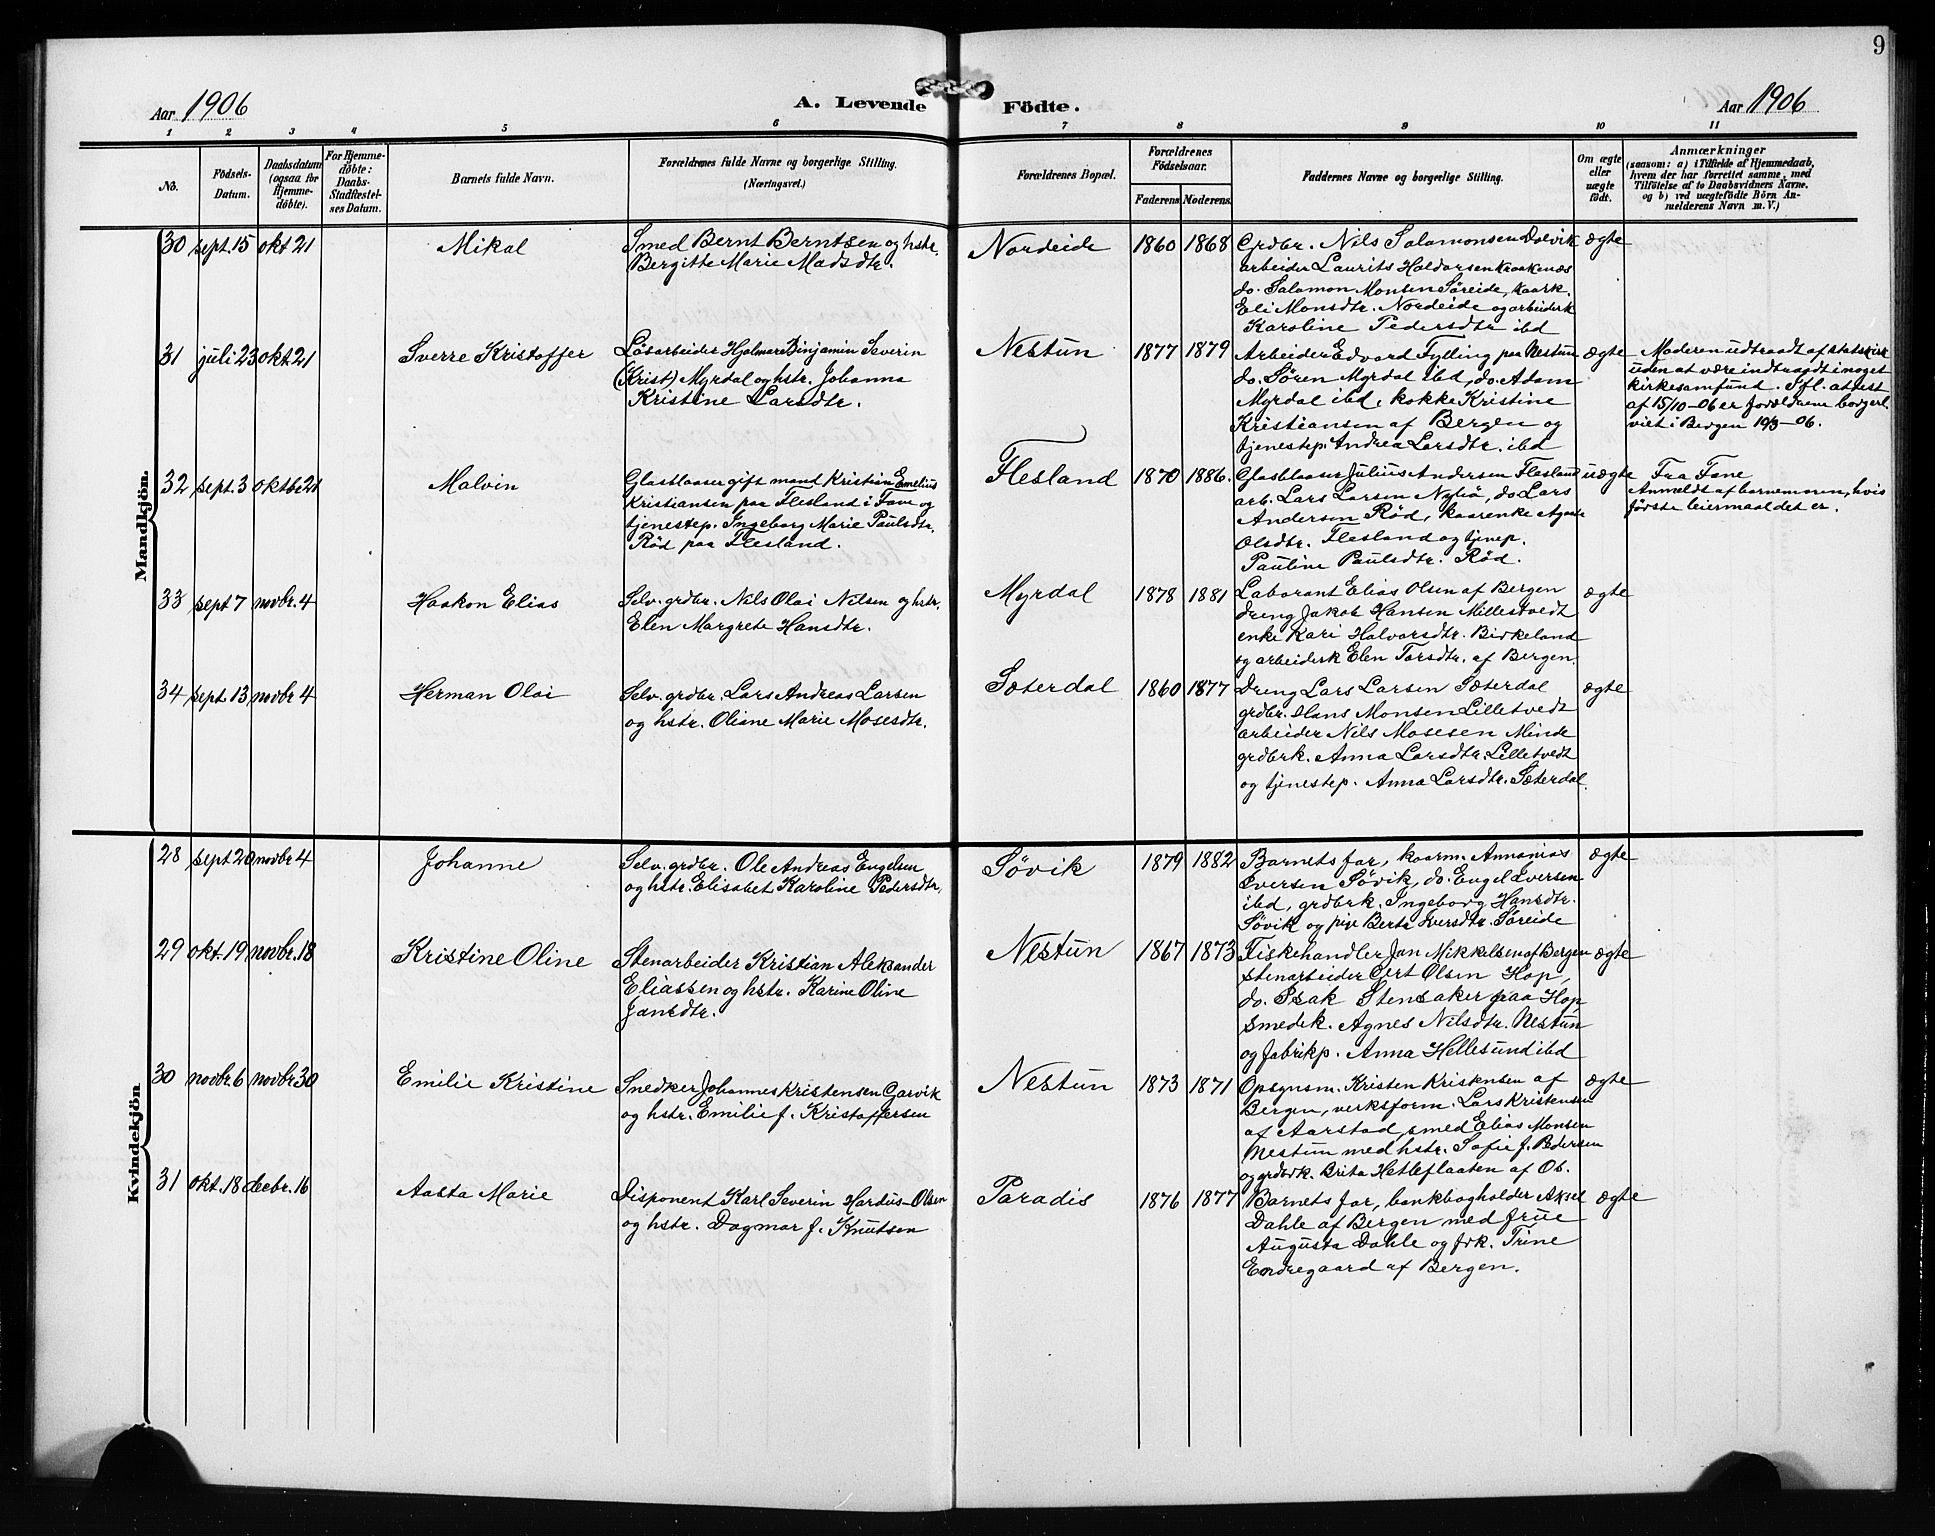 9
Aar 1906
A. Levende Födte.
Aar 1906
1 2 3 4 5 6 7 8 9 10 11
No.
Födsels-
Datum.
Daabsdatum
(ogsaa for
Hjemme-
döbte).
For Hjemme-
döbte:
Daabs-
Stadfæstel-
ses Datum.
Barnets fulde Navn.
Forældrenes fulde Navne og borgerlige Stilling.
(Næringsvei.)
Forældrenes Bopæl.
Forældrenes
Födselsaar.
Faderens
Moderens.
Faddernes Navne og borgerlige Stilling.
Om ægte
eller
uægte
født.
Anmærkninger
(saasom: a) i Tilfælde af Hjemmedaab,
hvem der har forrettet samme, med
Tilföielse af to Daabsvidners Navne,
og b) ved uægtefödte Börn An-
melderens Navn m. V.)
Mandkjön.
30 sept. 15 okt 21
Mikal
Smed Bernt Berntsen og hstr.
Bergitte Marie Madsdtr.
Nordeide
1860 1868
Grdbr. Nils Salamonsen Dolvik
arbeider Laurits Haldorsen Kraakenæs
do. Salamon Monsen Søreide, kaark.
Eli Monsdtr. Nordeide og arbeiderk
Karoline Pedersdtr ibd
ægte
31 juli 23 okt. 21
Sverre Kristoffer
Løsarbeider Hjalmar Binjamin Severin
(Krist) Myrdal og hstr. Johanna
Kristine Larsdtr.
Nestun
1877 1879
Arbeider Edvard Fylling paa Nestun
do. Søren Myrdal ibd, do. Adam
Myrdal ibd, kokke Kristine
Kristiansen af Bergen og
tjenestep. Andrea Larsdtr. ibd
ægte
Moderen udtraadt af statskirk
uden at være indtraadt i noget
kirkesamfund. Ifl. attest
af 15/10-06 er forældrene borgerl.
viet i Bergen
32 sept. 3 oktbr 21
Malvin
Glasblaaser gift mand Kristian Emelius
Kristiansen paa Flesland i Fane og
tjenestep. Ingeborg Marie Paulsdtr.
Rød paa Flesland.
Flesland
1870 1886.
Glasblaaser Julius Andersen Flesland
arb. Lars Larsen Nybø, do. Lars
Anderson Rød, kaarenke Agate
Olsdtr. Flesland og tjenep.
Pauline Paulsdtr. Rød.
uægte
Fra Fane
Anmeldt af barnemoren, hvis
første leiermaal det er.
33 sept 7 novbr. 4
Haakon Elias
Selv. grdbr. Nils Olai Nilsen og hstr.
Elen Margrete Hansdtr.
Myrdal
1878 1881
Laborant Elias Olsen af Bergen
dreng Jakob Hansen Millestvedt
enke Kari Halvorsdtr. Birkeland
og arbeiderk Elen Torsdtr. af Bergen.
ægte
34 sept. 13 novbr. 4
Herman Olai
Selv. grdbr. Lars Andreas Larsen
og hstr. Oliane Marie Mosesdtr.
Sæterdal
1860 1877
Dreng Lars Larsen Sæterdal
grdbr. Hans Monsen Lilletvedt
arbeider Nils Mosesen Minde
grdbrk. Anna Larsdtr. Lilletvedt
og tjenestep. Anna Larsdtr. Sæterdal.
ægte
Kvindekjön
28 sept 20 novbr. 4
Johanne
Selv. grdbr. Ole Andreas Engelsen
og hstr. Elisabet Karoline Pedersdtr.
Søvik
1879 1882
Barnets far, kaarm. Annanias
Iversen Søvik, do. Engel Iversen
ibd, grdbrk. Ingeborg Hansdtr.
Søvik og pige Berta Iversdtr. Søreide
ægte
29 okt. 19 novbr. 18
Kristine Oline
Stenarbeider Kristian Aleksander
Eliassen og hstr. Karine Oline
Jansdtr.
Nestun
1867 1873
Fiskehandler Jan Mikkelsen af Bergen
stenarbeider Gert Olsen Hop,
do. Isak Stensaker paa Hop
smedek. Agnes Nilsdtr. Nestun
og fabrikp. Anna Hellesund ibd
ægte
30 novbr. 6 novbr. 30
Emilie Kristine
Snedker Johannes Kristensen Garvik
og hstr. Emilie f. Kristoffersen
Nestun
1873 1871
Opsynsm. Kristen Kristensen af
Bergen, verksform. Lars Kristensen
af Aarstad, smed Elias Monsen
Nestun med hstr. Sofie f. Pedersen
og grdbrk. Brita Hetleflaaten af Os.
ægte
31 okt. 18 decbr. 16
Aasta Marie
Disponent Karl Severin Hardus-Olsen
og hstr. Dagmar f. Knutson
Paradis
1876 1877
Barnets far, bankbogholder Aksel
Dahle af Bergen med frue
Augusta Dahle og frk. Trine
Endregaard af Bergen.
ægte